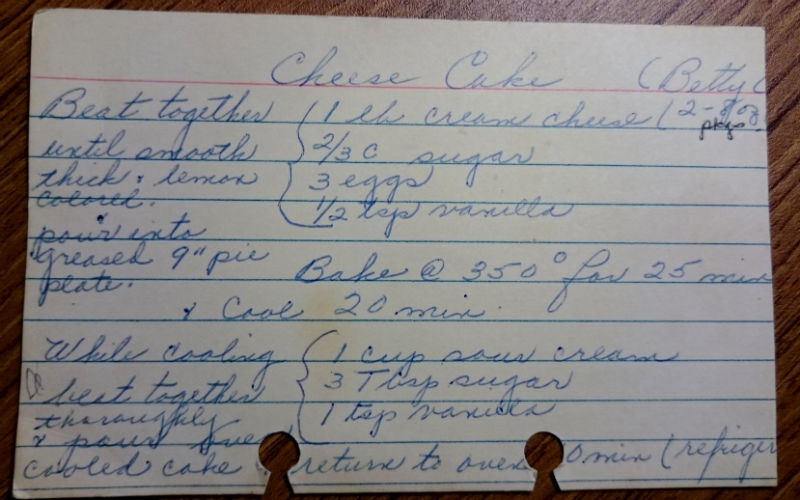 Cheese Cake (Betty
Beat together
until smooth
thick & lemon
colored.
pour into
greased 9" pie
plate.
1 lb cream cheese (2-8 oz
pkgs.
2/3 c sugar
3 eggs
1/2 tsp vanilla
Bake @ 350° for 25 min
& Cool 20 min.
While cooling
beat together
thoroughly
& pour over
1 cup sour cream
3 Tbsp sugar
1 tsp vanilla
cooled cake & return to oven 0 min (refriger